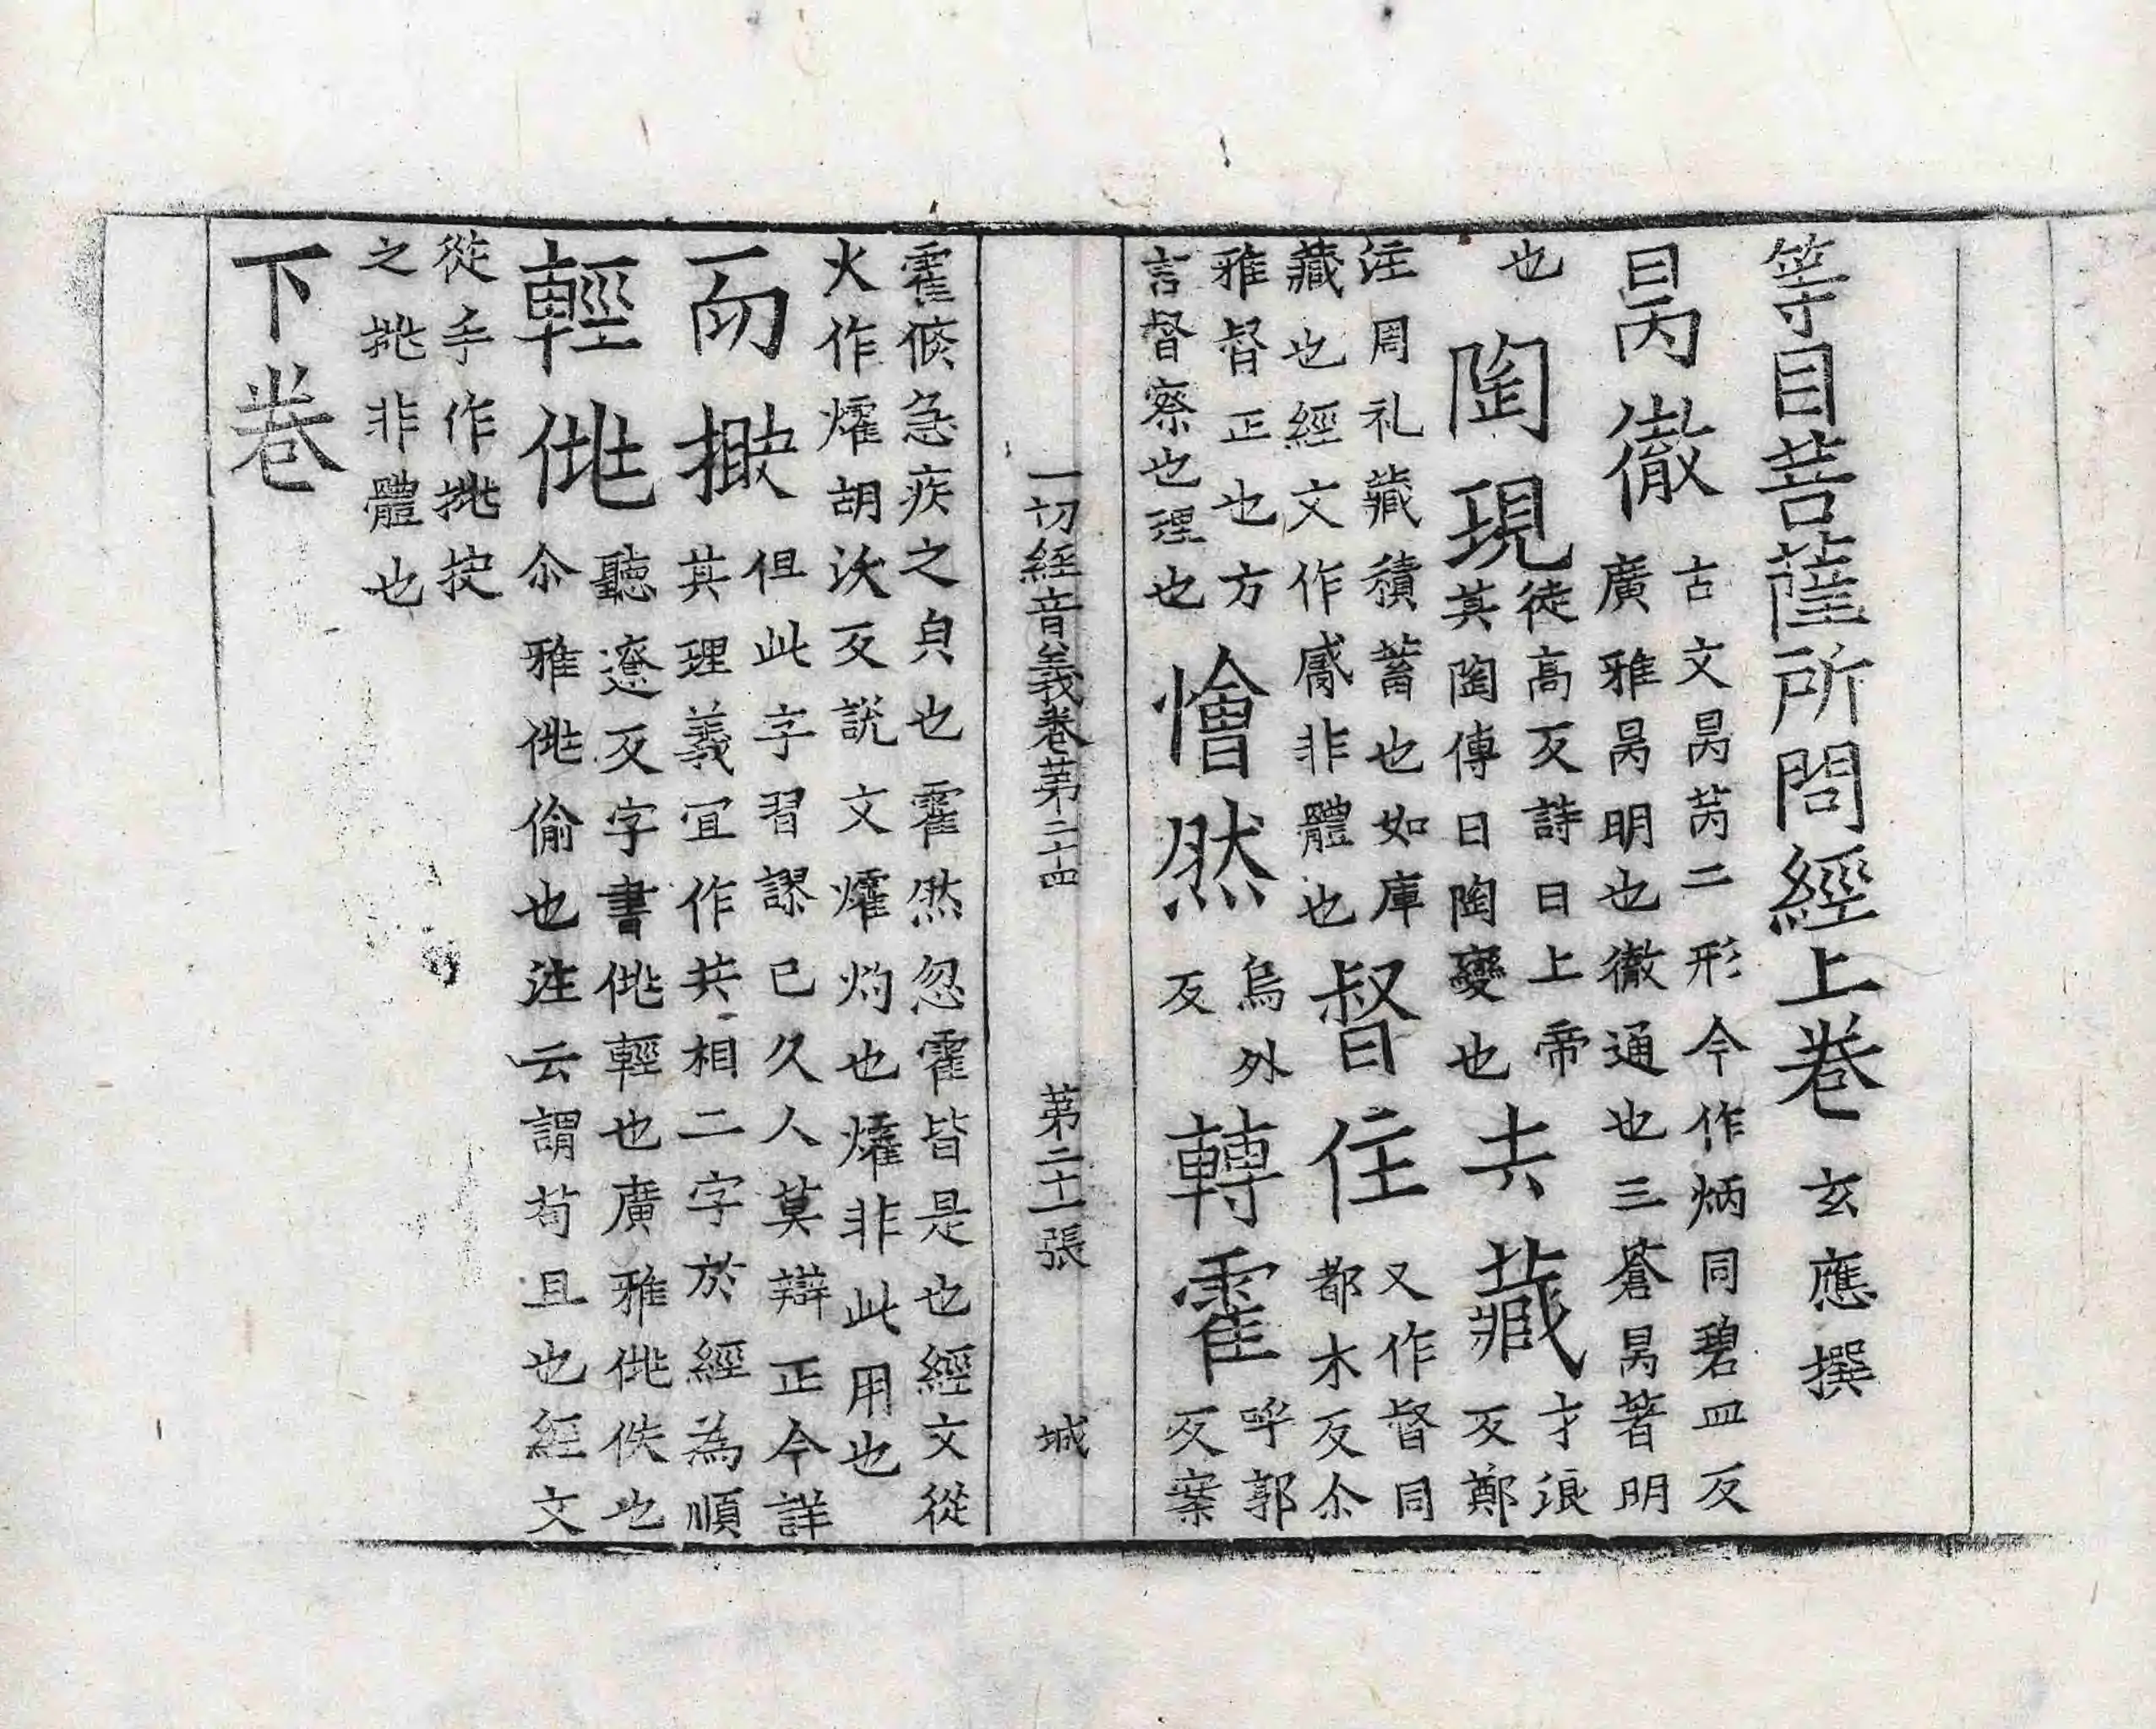 等目菩薩所問經上卷 玄應撰
昺徹
古文昺苪二形今作炳同碧皿反
廣雅昺明也徹通也三蒼昺著明
也
陶現
徒高反詩曰上帝
其陶傳曰陶變也
去藏
才浪
反鄭
注周礼藏積蓄也如庫
藏也經文作非體也
督住
又作督同
都木反尒
雅督正也方
言督察也理也
懀然
烏外
反
轉霍
呼郭
反案
一切經音義卷第二十四 第二十一張 城
霍倏急疾之皃也霍然忽霍皆是也經文從
火作㸌胡沃反說文㸌灼也㸌非此用也
而
但此字習謬已久人莫辯正今詳
其理義冝作共相二字於經為順
輕佻
聽遼反字書佻輕也廣雅佻佚也
尒雅佻偷也注云謂苟且也經文
從手作挑挍
之挑非體也
下卷